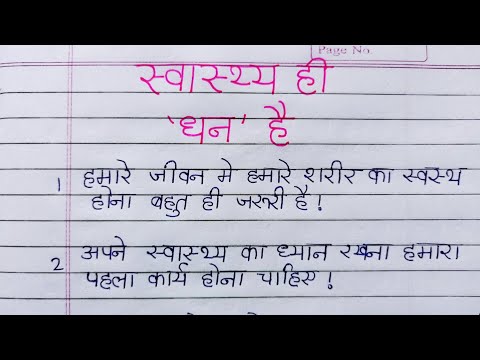 Page No.
स्वास्थ्य ही
'धन' है
1 हमारे जीवन मे हमारे शरीर का स्वस्थ
होना बहुत ही जरुरी है !
2 अपने स्वास्थ्य का ध्यान रखना हमारा
पहला कार्य होना चाहिए !